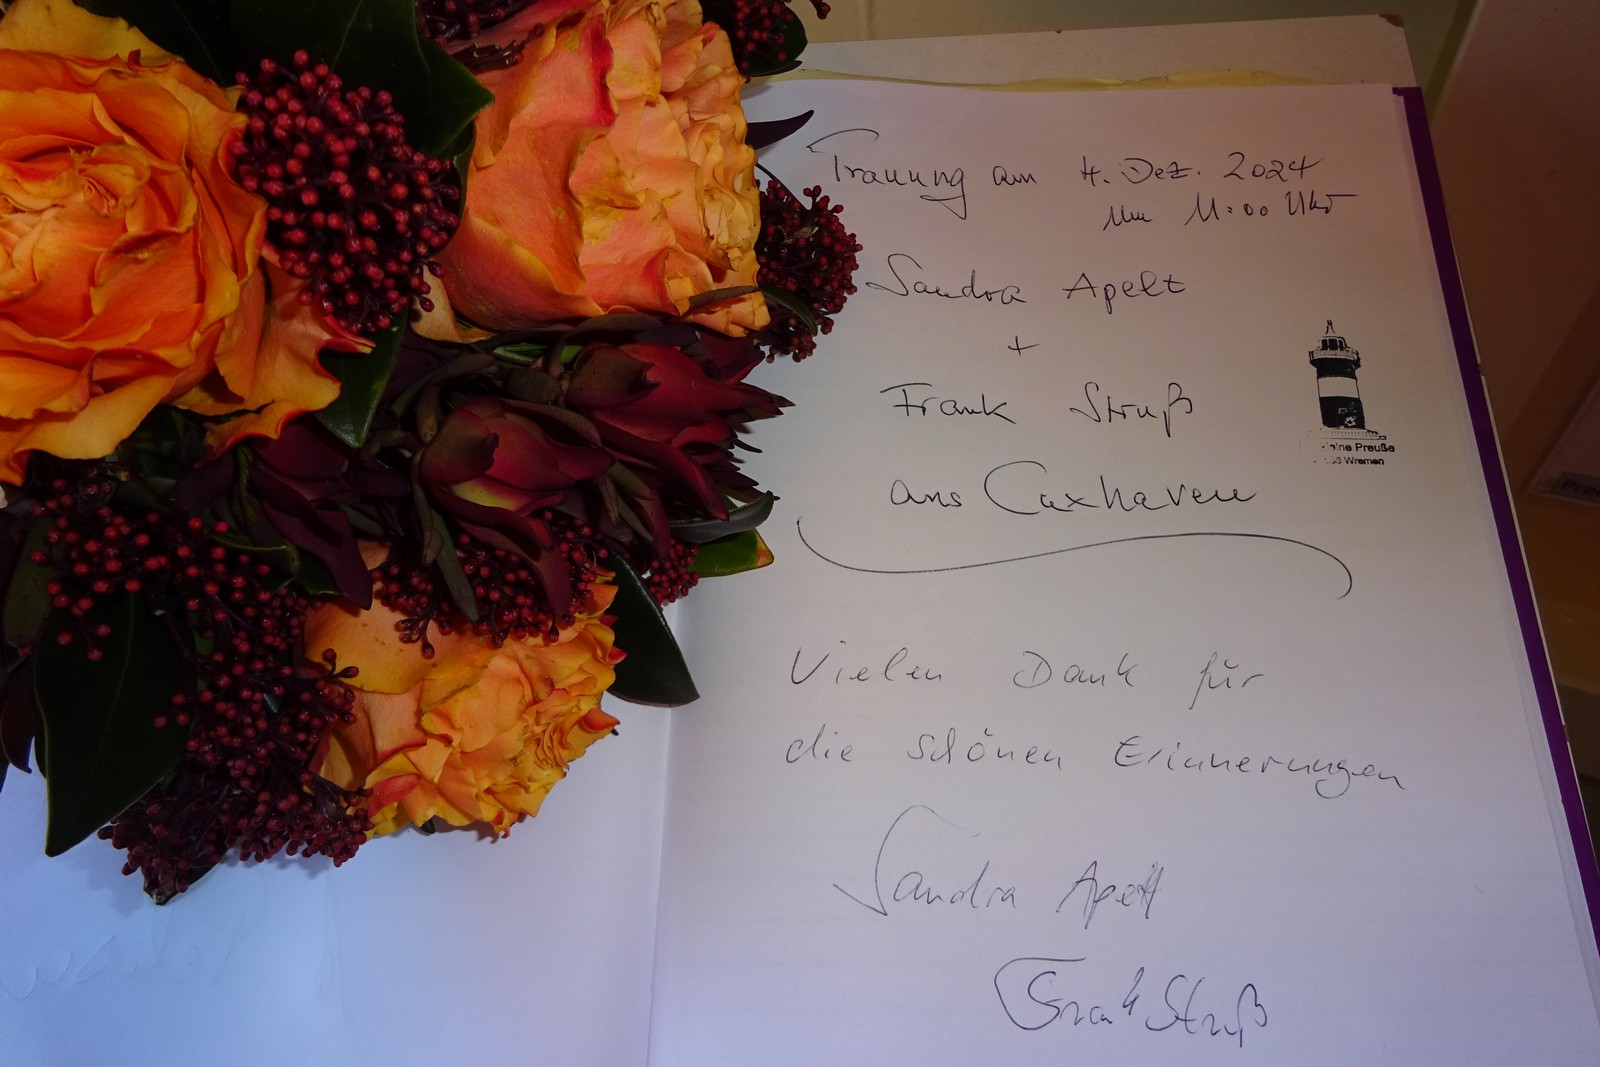 Trauung am 4. Dez. 2024
um 11:00 Uhr
Sandra Apelt
+
Frank Struß
aus Cuxhaven
eine Preuße
Wremen
Vielen Dank für
die schönen Erinnerungen
Sandra Apelt
Frank Struß